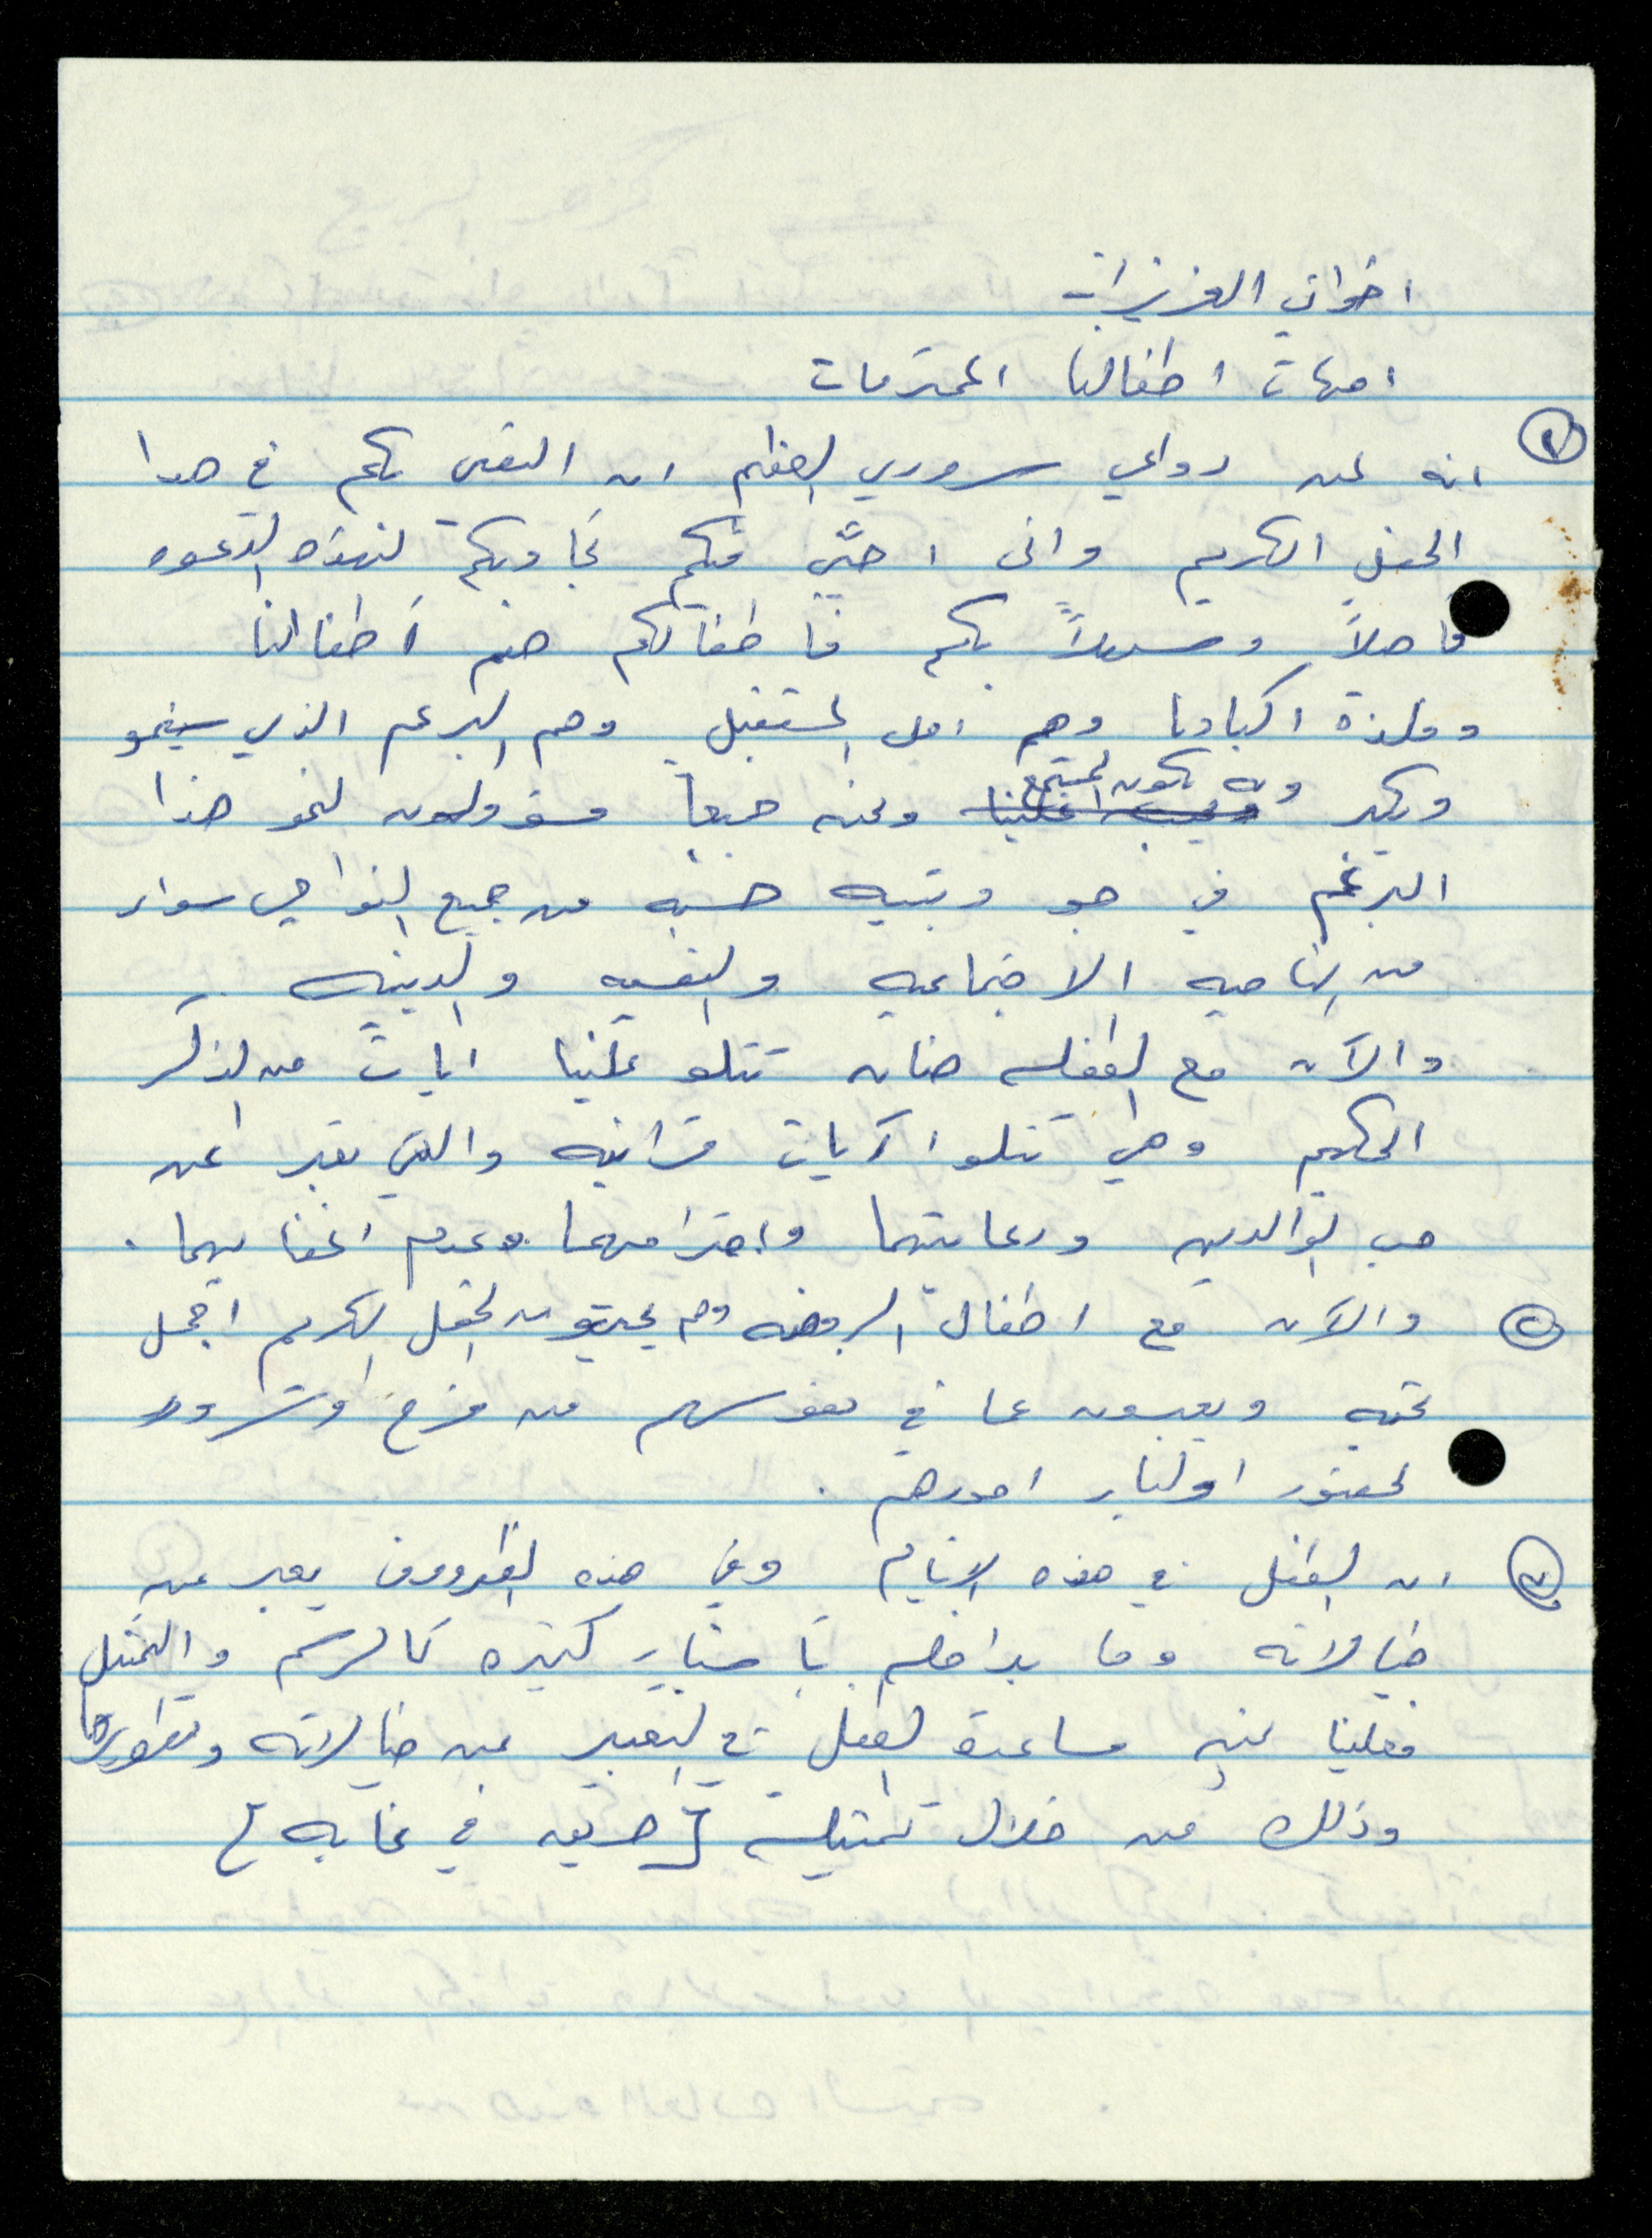 اخواتي العزيزات
امهات اطفالنا المحترمات
١ انه لمن دواعي سروري العظيم ان التقي بكم في هذا
الحفل الكريم واني احيّي فيكم تجاوبكم لهذه الدعوه
فاهلاً وسهلاً بكم فاطفالكم هم أطفالنا
وفلذة اكبادنا وهم امل المستقبل وهم البرعم الذي سينمو
ويكبر وبه يكون المجتمع ونحن جميعاً مسؤولون لنمو هذا
البرعم في جو وبيئه حسنه من جميع النواحي سواء
من الناحيه الاجتماعيه والنفسيه والدينيه .
والآن مع الطفله حنان تتلو علينا ايات من الذكر
الحكيم وهي تتلوا آيات قرانيه والتي تعبر عن
حب الوالدين ورعايتهما واحترامهما وعدم اغضابهما .
٢ والآن مع اطفال الروضه وهم يحيون الحفل الكريم اجمل
تحيه ويعبرون عما في نفوسهم من فرح وسرور
لحضور اولياء امورهم .
٣ ان الطفل في هذه الايام وفي هذه الظروف يعبر عن
خيالاته وما بداخله باشياء كثيره كالرسم والتمثيل
فعلينا نحن مساعدة الطفل في التعبير عن خيالاته وتطويرها
وذلك من خلال تمثيلية [حريق في غابه]